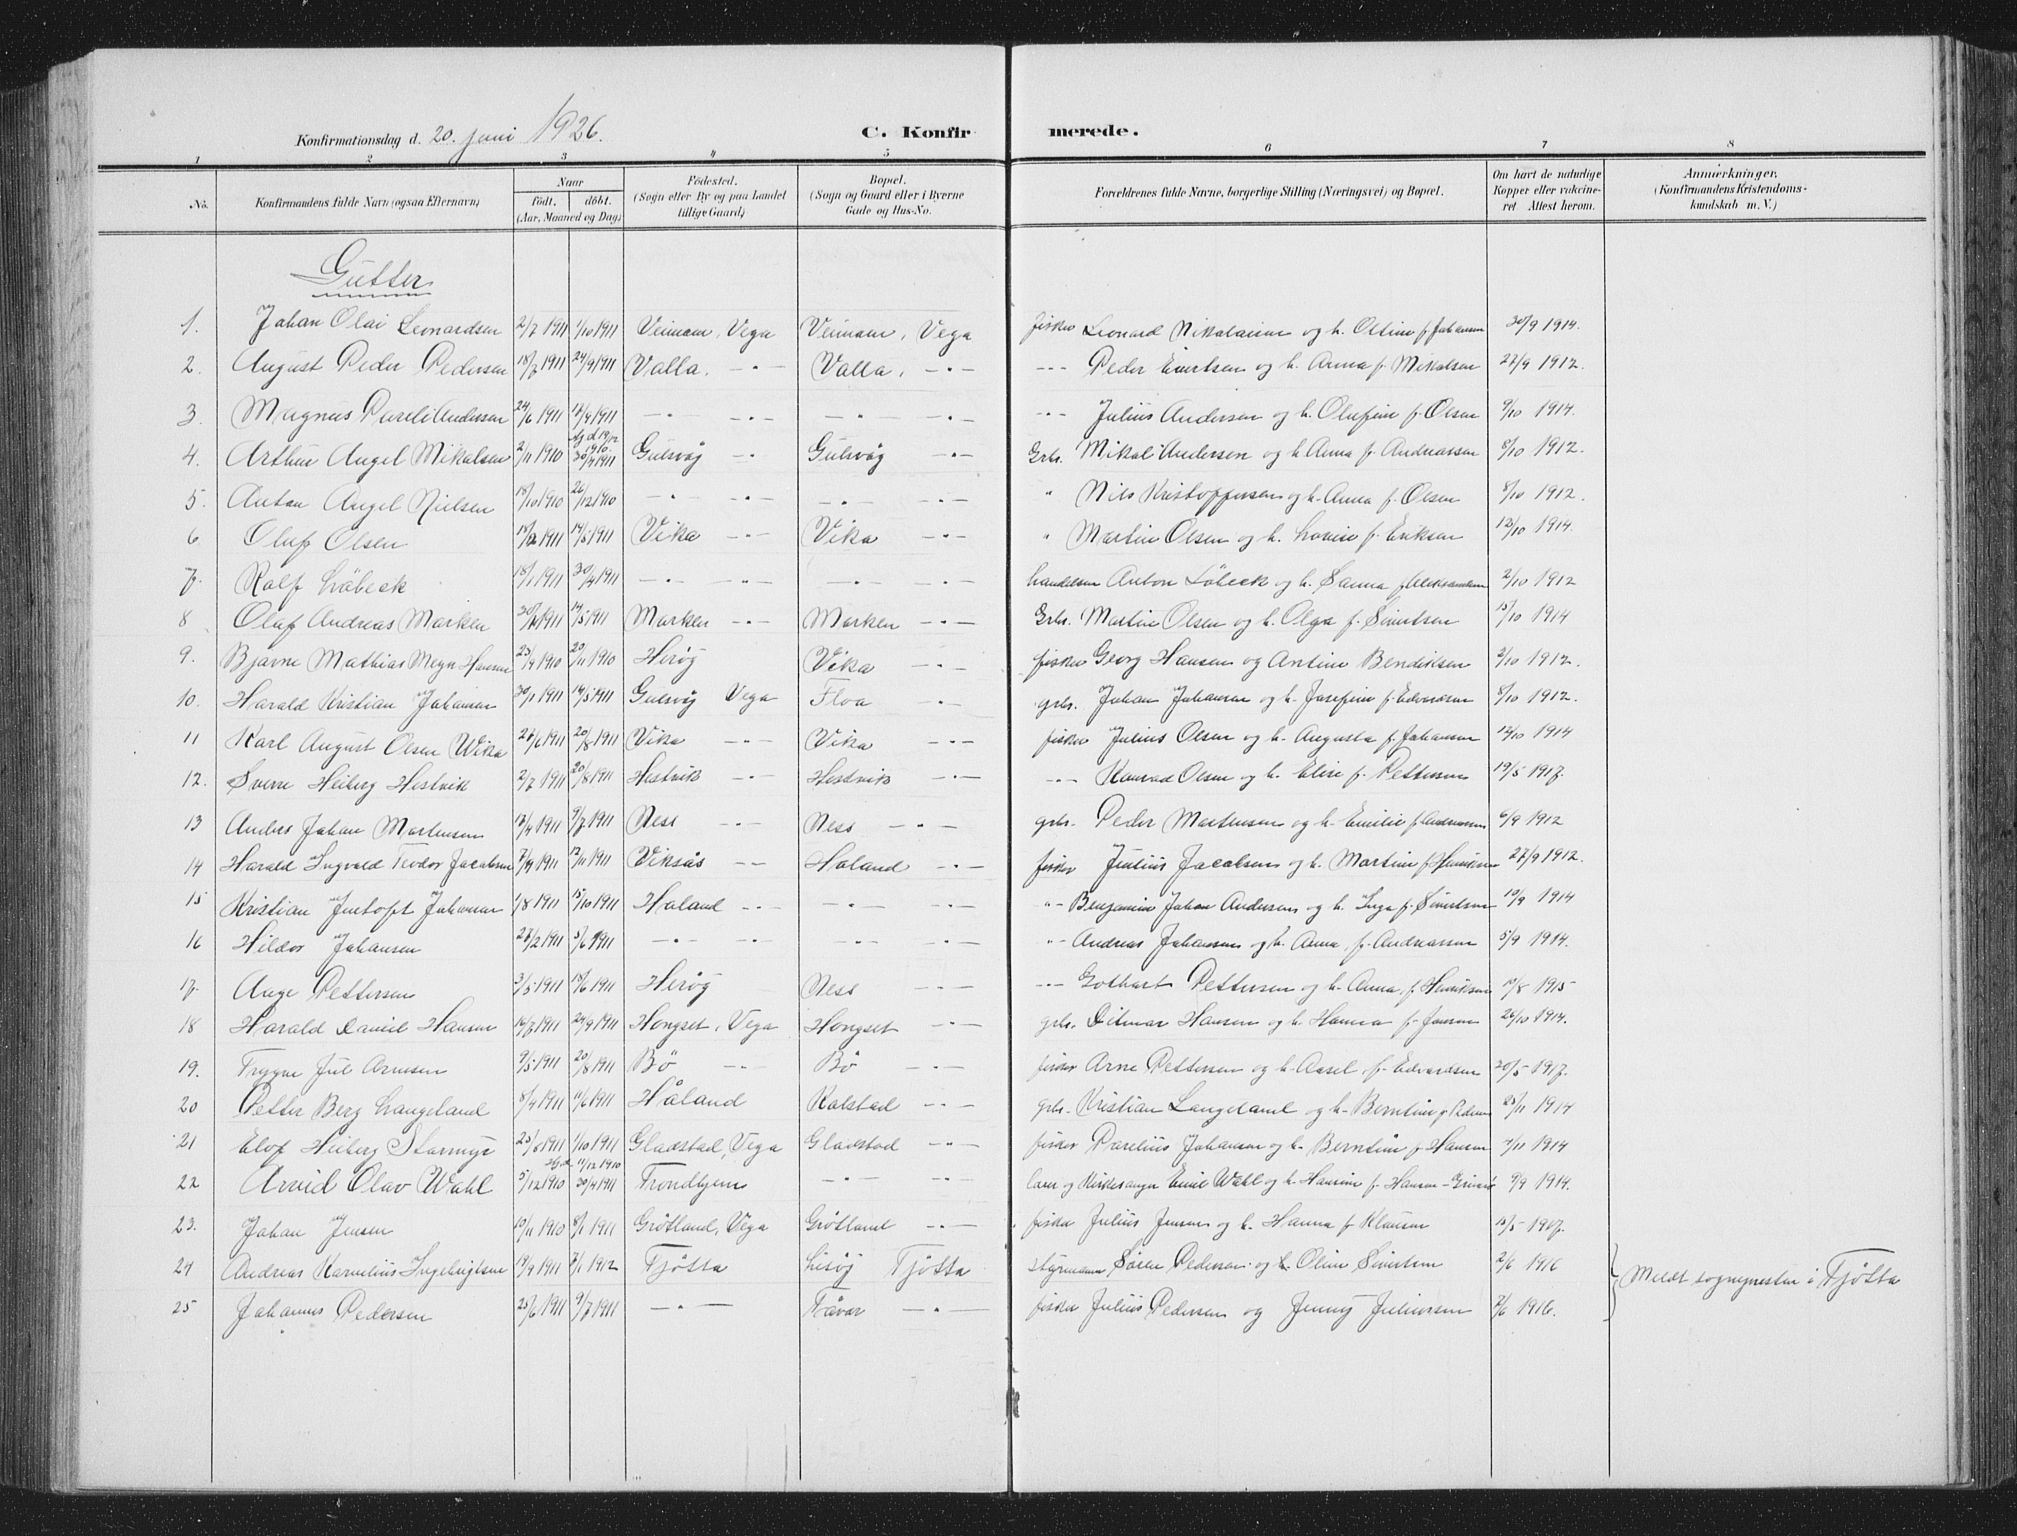 Konfirmationsdag d. 20. juni 1926.
C. Konfir merede.
1 2 3 4 5 6 7 8
No. Konfirmandens fulde Navn (ogsaa Efternavn) Naar födt. döbt. (Aar, Maaned og Dag) Födested. (Sogn eller By og paa Landet tillige Gaard) Bopæl. (Sogn og Gaard eller i Byerne Gade og Hus-No. Forældrenes fulde Navne, borgerlige Stilling (Næringsvei) og Bopæl. Om havt de naturlige Kopper eller vaccineret Attest herom. Anmærkninger. (Konfirmandens Kristendomskundskab m. V.)
Gutter
1. Johan Olai Leonardsen 2/7 1911 1/10 1911 Veinam, Vega Veinam, Vega fisker Leonard Nikolaisen og h. Oline f. Johansen 30/9 1914.
2. August Peder Pedersen 18/7 1911 24/9 1911 Valla. -"- Valla, -"- -"- Peder Evertsen og h. Anna f. Mikalsen 22/9 1912.
3. Magnus Pareli Andersen 24/6 1911 17/9 1911 -"- -"- -"- -"- -"- Julius Andersen og h. Olufine f. Olsen 9/10 1914.
4. Arthur Angel Mikalsen 2/11 1910 30/4 1911 Gulsvåg -"- Gulsvåg -"- Grbr. Mikal Andersen og h. Anna f. Andreassen 8/10 1912.
5. Anton Angel Nielsen 18/10 1910 26/12 1910 -"- -"- -"- -"- " Nils Kristoffersen og h. Anna f. Olsen 8/10 1912.
6 Oluf Olsen 1911 14/5 1911 Vika -"- Vika -"- " Martin Olsen og h. Lovise f. Eriksen 12/10 1914.
7. Rolf Löbeck 18/1 1911 30/4 1911 -"- -"- -"- -"- handelsm Anton Löbeck og h. Sanna f. 2/10 1912
8 Oluf Andreas Marken 1911 14/5 1911 Marken -"- Marken -"- Grbr. Martin Olsen og h. Olga f. Sivertsen 15/10 1914
9. Bjarne Mathias Meyn Hansen 23/9 1910 20/11 1910 Herøg Vika -"- fisker Georg Hansen og Antine Bendiksen 2/10 1912.
10. Harald Kristian Johansen 30/1 1911 14/5 1911 Gulsvåg Vega Floa -"- grbr. Johan Johansen og h. Josefine f. Edvardsen 8/10 1912.
11 Karl August Olsen Wika 27/6 1911 20/8 1911 Vika -"- Vika -"- fisker Julius Olsen og h. Augusta f. Johansen 12/10 1914
12. Sverre Heiberg Hestvik 2/7 1911 20/8 1911 Hestvik -"- Hestvik -"- -"- Konrad Olsen og h. Elise f. Pettersen 19/5 1917.
13 Anders Johan Martensen 13/4 1911 9/7 1911 Ness -"- Ness -"- grbr. Peder Martensen og h. Emilie f. Andreassen 6/9 1912
14 Harald Ingvald Teodor Jacobsen 7/9 1911 12/11 1911 Viksås -"- Haland -"- fisker Julius Jacobsen og h. Martine f. Henriksen 27/9 1912.
15 Kristian Johansen 1/8 1911 15/10 1911 Haland -"- -"- -"- -"- Benjamin Johan Andersen og h. Inga f. Sivertsen 19/9 1914
16 Hildor Johansen 27/2 1911 5/6 1911 -"- -"- -"- -"- -"- Andreas Johansen og h. Anna f. Andreassen 5/9 1914.
17. Aage Pettersen 3/5 1911 18/6 1911 Herøg Ness -"- -"- Gothart Pettersen og h. Anna f. Henriksen 11/8 1915
18 Harald Daniel Hansen 16/7 1911 24/9 1911 Hongset, Vega Hongset -"- grbr. Ditmar Hansen og h. Hanna f. Jensen 26/10 1914.
19. Trygve Jul Arnesen 9/5 1911 20/8 1911 Bö -"- Bø -"- fisker Arne Pettersen og h. Aasel f. Edvardsen 20/5 1917.
20 Petter Berg Langeland 8/4 1911 11/6 1911 Håland Kalstad -"- grbr. Kristian Langeland og h. Berntine f. Pedersen 25/11 1914
21 Elof Heiberg 25/8 1911 1/10 1911 Gladstad, Vega Gladstad -"- fisker Parelius Johansen og h. Berntine f. Hansen 2/11 1914
22 Arvid Olav Wahl 5/12 1910 30/4 1911 Trondhjem -"- -"- lærer og Kirkesanger Emil Wahl og h. Hansine f. Hansen 7/9 1914.
23. Johan Jensen 10/11 1910 8/1 1911 Grötland, Vega Grötland -"- fisker Julius Jensen og h. Hanna f. Klausen 15/5 1917.
24 Andreas Kornelius Ingebrigtsen 19/9 1911 7/1 1912 Tjötta Tjötta styrmann Sören Pedersen og h. Oline Sivertsen 2/6 1916
Meldt sognepresten i Tjötta
25 Johannes Pedersen 25/6 1911 9/7 1911 -"- Tåvær -"- fisker Julius Pedersen og Jenny Juliussen 7/6 1916.